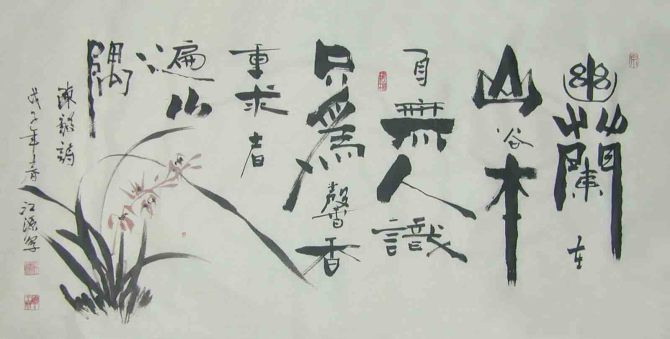 幽蘭在
山谷本
自無人識
只為馨香
重求者
遍山
隅
陳毅詩
戊子年春江源寫